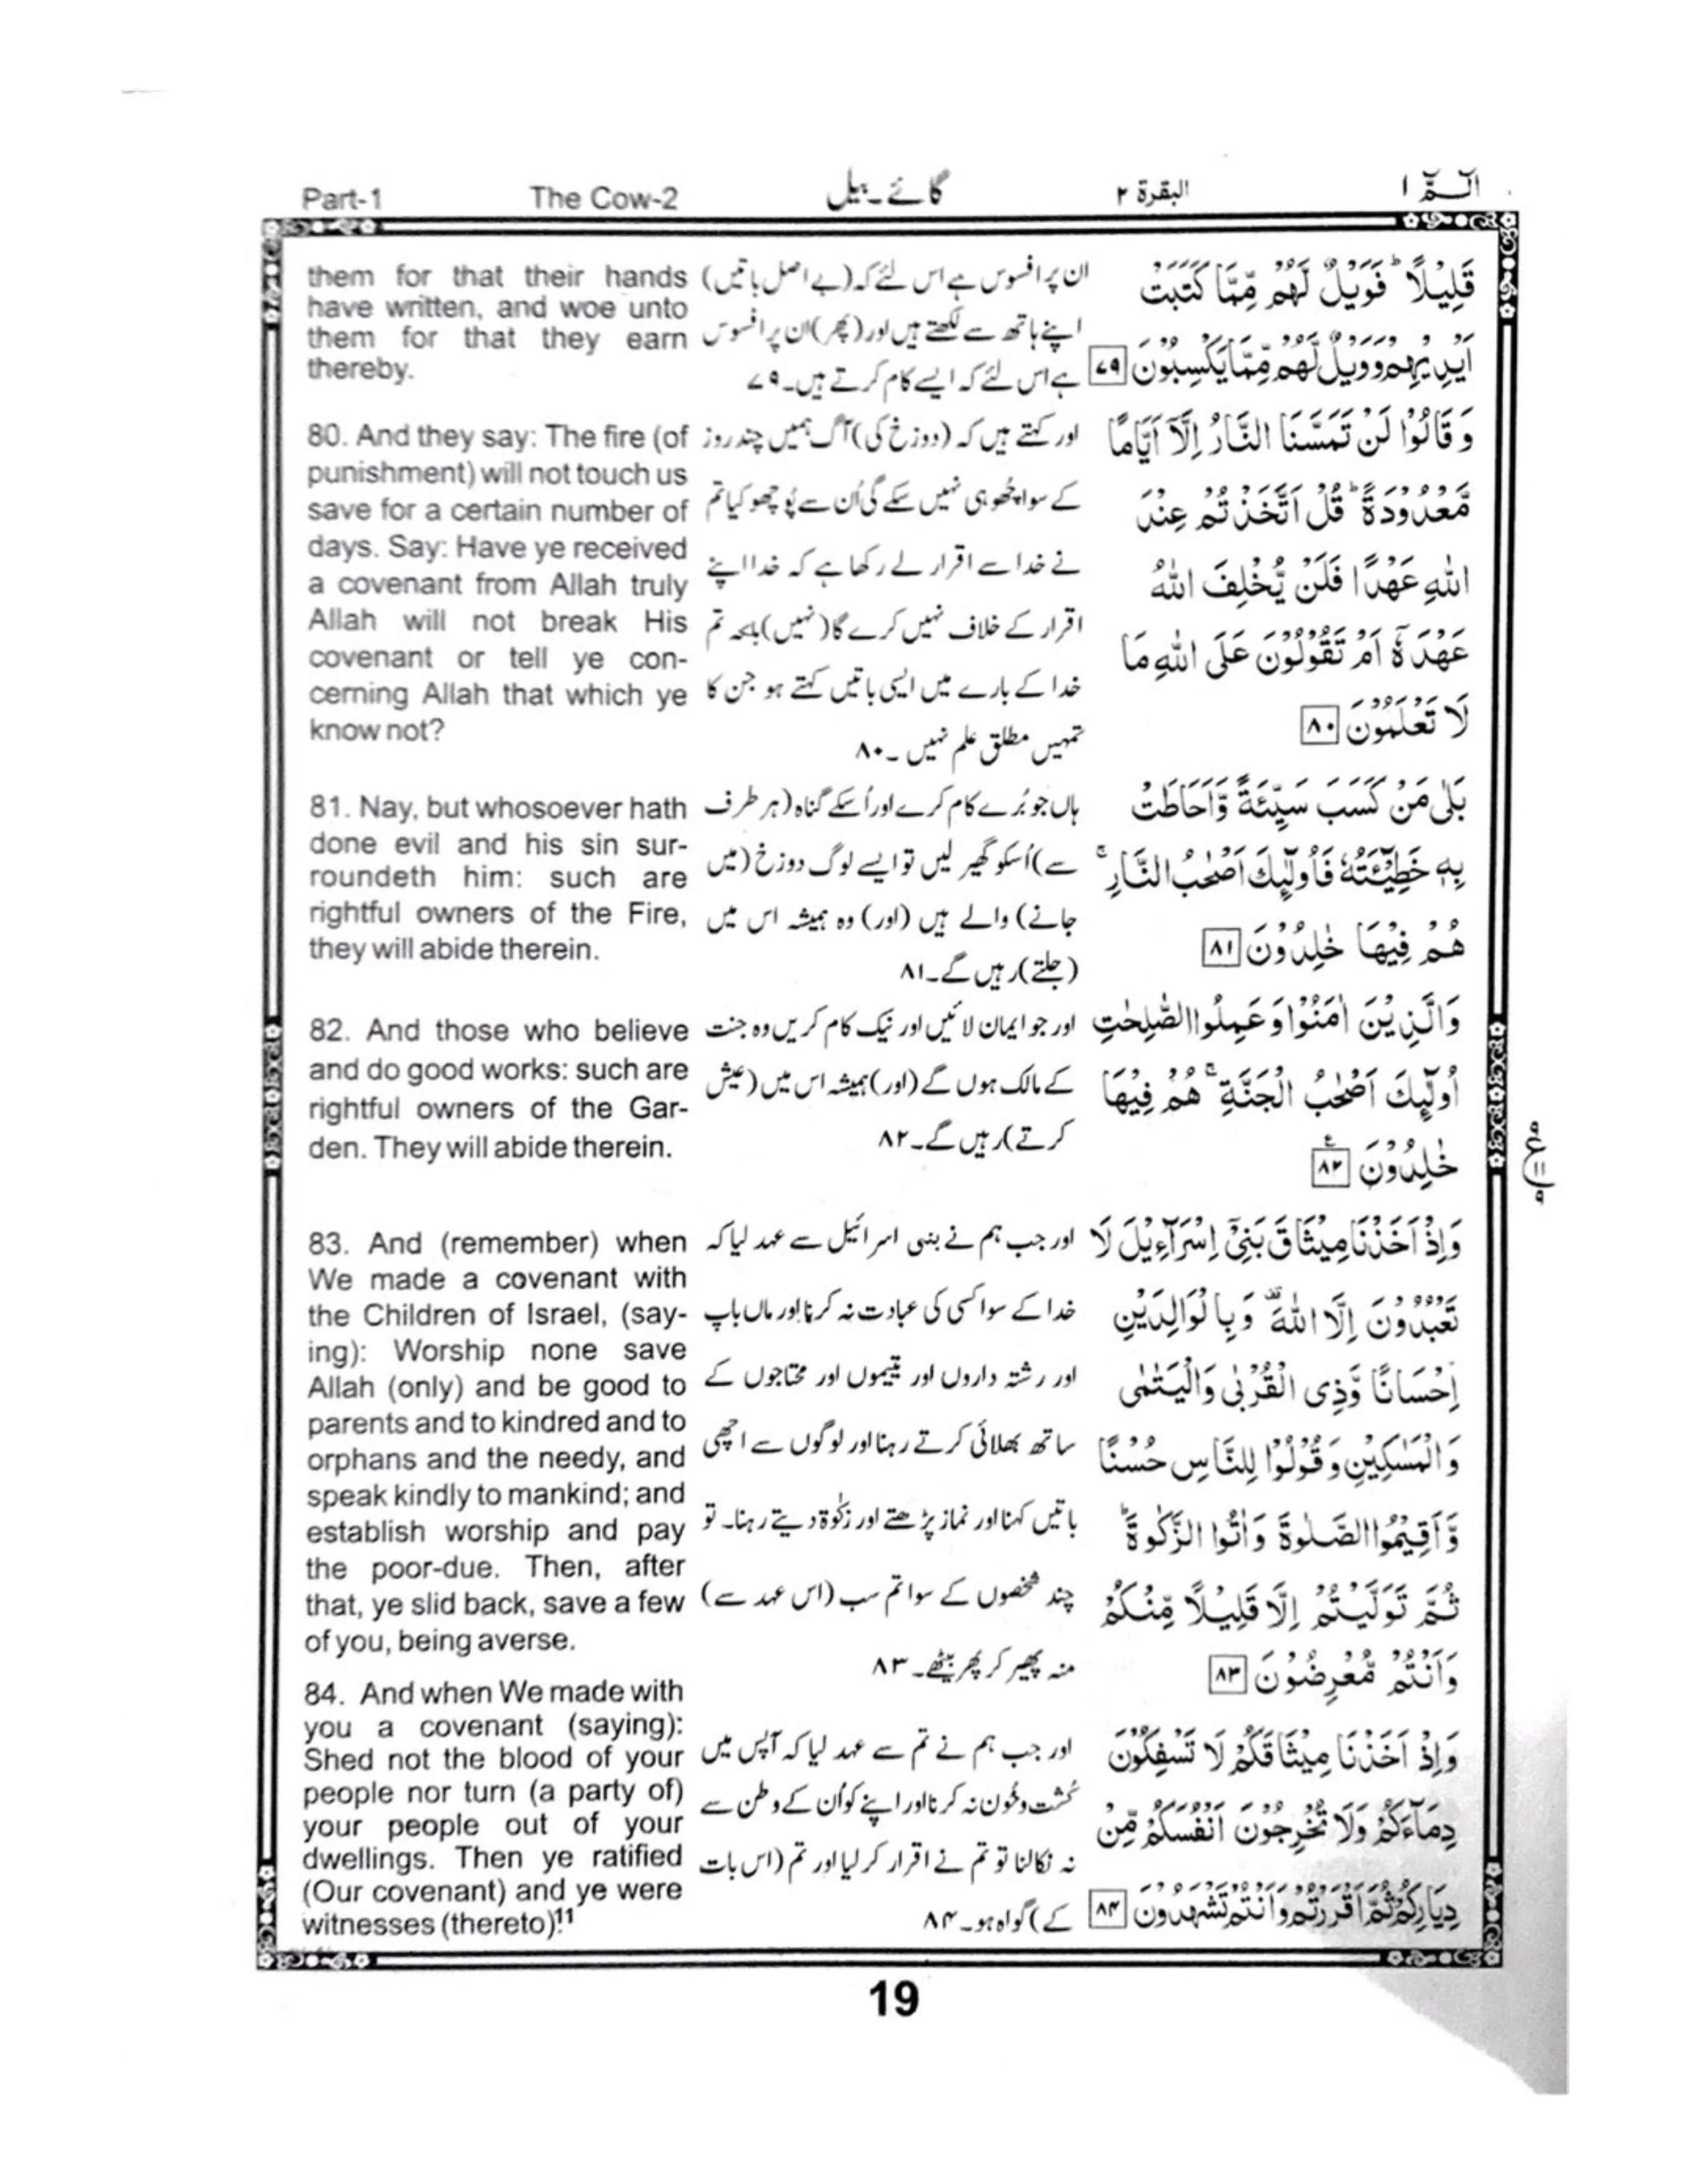 Part-1 The Cow-2 گائے۔بیل البقرة ٢ الٓـمّٓ ١
them for that their hands
have written, and woe unto
them for that they earn
thereby.
80. And they say: The fire (of
punishment) will not touch us
save for a certain number of
days. Say: Have ye received
a covenant from Allah truly
Allah will not break His
covenant or tell ye con-
cerning Allah that which ye
know not?
81. Nay, but whosoever hath
done evil and his sin sur-
roundeth him: such are
rightful owners of the Fire,
they will abide therein.
82. And those who believe
and do good works: such are
rightful owners of the Gar-
den. They will abide therein.
83. And (remember) when
We made a covenant with
the Children of Israel, (say-
ing): Worship none save
Allah (only) and be good to
parents and to kindred and to
orphans and the needy, and
speak kindly to mankind; and
establish worship and pay
the poor-due. Then, after
that, ye slid back, save a few
of you, being averse.
84. And when We made with
you a covenant (saying):
Shed not the blood of your
people nor turn (a party of)
your people out of your
dwellings. Then ye ratified
(Our covenant) and ye were
witnesses (thereto)!11
ان پر افسوس ہے اس لئے کہ (بے اصل باتیں)
اپنے ہاتھ سے لکھتے ہیں اور (پھر) ان پر افسوس
ہے اس لئے کہ ایسے کام کرتے ہیں۔۷۹
اور کہتے ہیں کہ (دوزخ کی) آگ ہمیں چند روز
کے سوا چُھو ہی نہیں سکے گی اُن سے پُوچھو کیا تم
نے خدا سے اقرار لے رکھا ہے کہ خدا اپنے
اقرار کے خلاف نہیں کرے گا (نہیں) بلکہ تم
خدا کے بارے میں ایسی باتیں کہتے ہو جن کا
تمہیں مطلق علم نہیں ۔۸۰
ہاں جو بُرے کام کرے اور اُسکے گناہ (ہر طرف
سے) اُسکو گھیر لیں تو ایسے لوگ دوزخ (میں
جانے) والے ہیں (اور) وہ ہمیشہ اس میں
(جلتے) رہیں گے۔۸۱
اور جو ایمان لائیں اور نیک کام کریں وہ جنت
کے مالک ہوں گے (اور) ہمیشہ اس میں (عیش
کرتے) رہیں گے۔۸۲
اور جب ہم نے بنی اسرائیل سے عہد لیا کہ
خدا کے سوا کسی کی عبادت نہ کرنا اور ماں باپ
اور رشتہ داروں اور یتیموں اور محتاجوں کے
ساتھ بھلائی کرتے رہنا اور لوگوں سے اچھی
باتیں کہنا اور نماز پڑھتے اور زکٰوۃ دیتے رہنا۔ تو
چند شخصوں کے سوا تم سب (اس عہد سے)
منہ پھیر کر پھر بیٹھے۔۸۳
اور جب ہم نے تم سے عہد لیا کہ آپس میں
کُشت و خُون نہ کرنا اور اپنے کو اُن کے وطن سے
نہ نکالنا تو تم نے اقرار کر لیا اور تم (اس بات
کے) گواہ ہو۔۸۴
قَلِيْلًا ؕ فَوَيْلٌ لَّهُمْ مِّمَّا كَتَبَتْ
اَيْدِيْهِمْ وَوَيْلٌ لَّهُمْ مِّمَّا يَكْسِبُوْنَ ۷۹
وَقَالُوْا لَنْ تَمَسَّنَا النَّارُ اِلَّآ اَيَّامًا
مَّعْدُوْدَةً ؕ قُلْ اَتَّخَذْتُمْ عِنْدَ
اللّٰهِ عَهْدًا فَلَنْ يُّخْلِفَ اللّٰهُ
عَهْدَهٗٓ اَمْ تَقُوْلُوْنَ عَلَى اللّٰهِ مَا
لَا تَعْلَمُوْنَ ۸۰
بَلٰى مَنْ كَسَبَ سَيِّئَةً وَّاَحَاطَتْ
بِهٖ خَطِيْٓئَتُهٗ فَاُولٰٓئِكَ اَصْحٰبُ النَّارِ ۚ
هُمْ فِيْهَا خٰلِدُوْنَ ۸۱
وَالَّذِيْنَ اٰمَنُوْا وَعَمِلُوا الصّٰلِحٰتِ
اُولٰٓئِكَ اَصْحٰبُ الْجَنَّةِ ۚ هُمْ فِيْهَا
خٰلِدُوْنَ ۸۲
وَاِذْ اَخَذْنَا مِيْثَاقَ بَنِيْٓ اِسْرَآءِيْلَ لَا
تَعْبُدُوْنَ اِلَّا اللّٰهَ ۟ وَبِالْوَالِدَيْنِ
اِحْسَانًا وَّذِى الْقُرْبٰى وَالْيَتٰمٰى
وَالْمَسٰكِيْنِ وَقُوْلُوْا لِلنَّاسِ حُسْنًا
وَّاَقِيْمُوا الصَّلٰوةَ وَاٰتُوا الزَّكٰوةَ ؕ
ثُمَّ تَوَلَّيْتُمْ اِلَّا قَلِيْلًا مِّنْكُمْ
وَاَنْتُمْ مُّعْرِضُوْنَ ۸۳
وَاِذْ اَخَذْنَا مِيْثَاقَكُمْ لَا تَسْفِكُوْنَ
دِمَآءَكُمْ وَلَا تُخْرِجُوْنَ اَنْفُسَكُمْ مِّنْ
دِيَارِكُمْ ثُمَّ اَقْرَرْتُمْ وَاَنْتُمْ تَشْهَدُوْنَ ۸۴
19